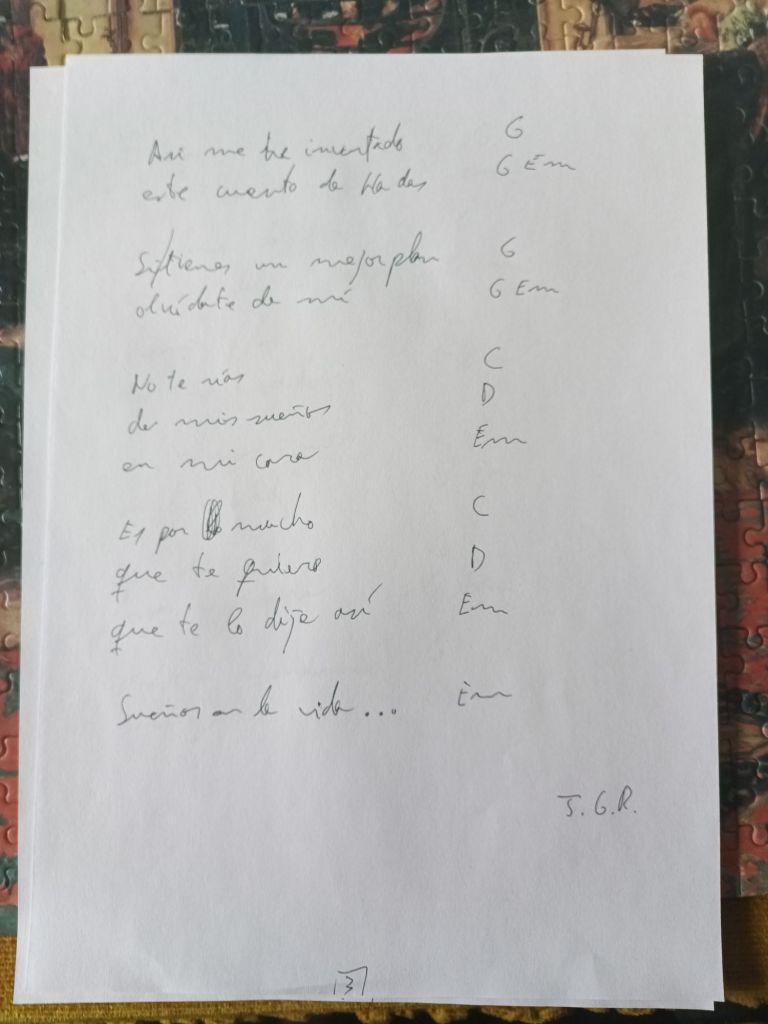 Así me he inventado G
este cuento de Hadas G Em
Si tienes un mejor plan G
olvídate de mí G Em
No te rías C
de mis sueños D
en mi cara Em
Es por mucho C
que te quiero D
que te lo dije así Em
Sueños en la vida... Em
J. G. R.
3